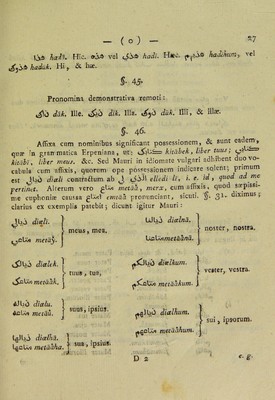 — ( o ) — 27
هذا hadi. Hic. هذه vel هذي hadi. Hæc. هذوم hadihum, vel
هذوك haduk. Hi, & hæ.
§. 45.
Pronomina demonstrativa remoti:
ذاك dak, Ille. ذيك dik. Illa. ذوك duk. Illi, & illæ.
§. 46.
Affixa cum nominibus significant possessionem, & sunt eadem,
quæ in grammatica Erpeniana, ut: كتابك kitábek, liber tuus; كتابي
kitábi, liber meus. &c. Sed Mauri in idiomate vulgari adhibent duo vo-
cabula cum affixis, quorum ope possessionem indicare solent; primum
est ديالي diali contractum ab الذي لي alladi li, i. e. id, quod ad me
pertinet. Alterum vero متاع metáȝ, merx, cum affixis, quod sæpissi-
me euphoniæ causa امتاع emtáȝ pronunciant, sicuti §. 31. diximus;
clarius ex exemplis patebit; dicunt igitur Mauri:
ديالي diali.
متاعي metaȝ.
} meus, mea.
ديالنا dialnâ.
متاعنا metaȝnâ.
} noster, nostra.
ديالك dialek.
متاعك metáȝek.
} tuus, tua,
ديالكم dialkum.
متاعكم metáȝkum.
} vester, vestra.
دياله dialu.
متاعه metáȝu.
} suus, ipsius.
ديالهم dialhum.
متاعهم metáȝhum.
} sui, ipsorum.
ديالها dialhâ.
متاعها metáȝha.
} sua, ipsius.
D 2 e. g.